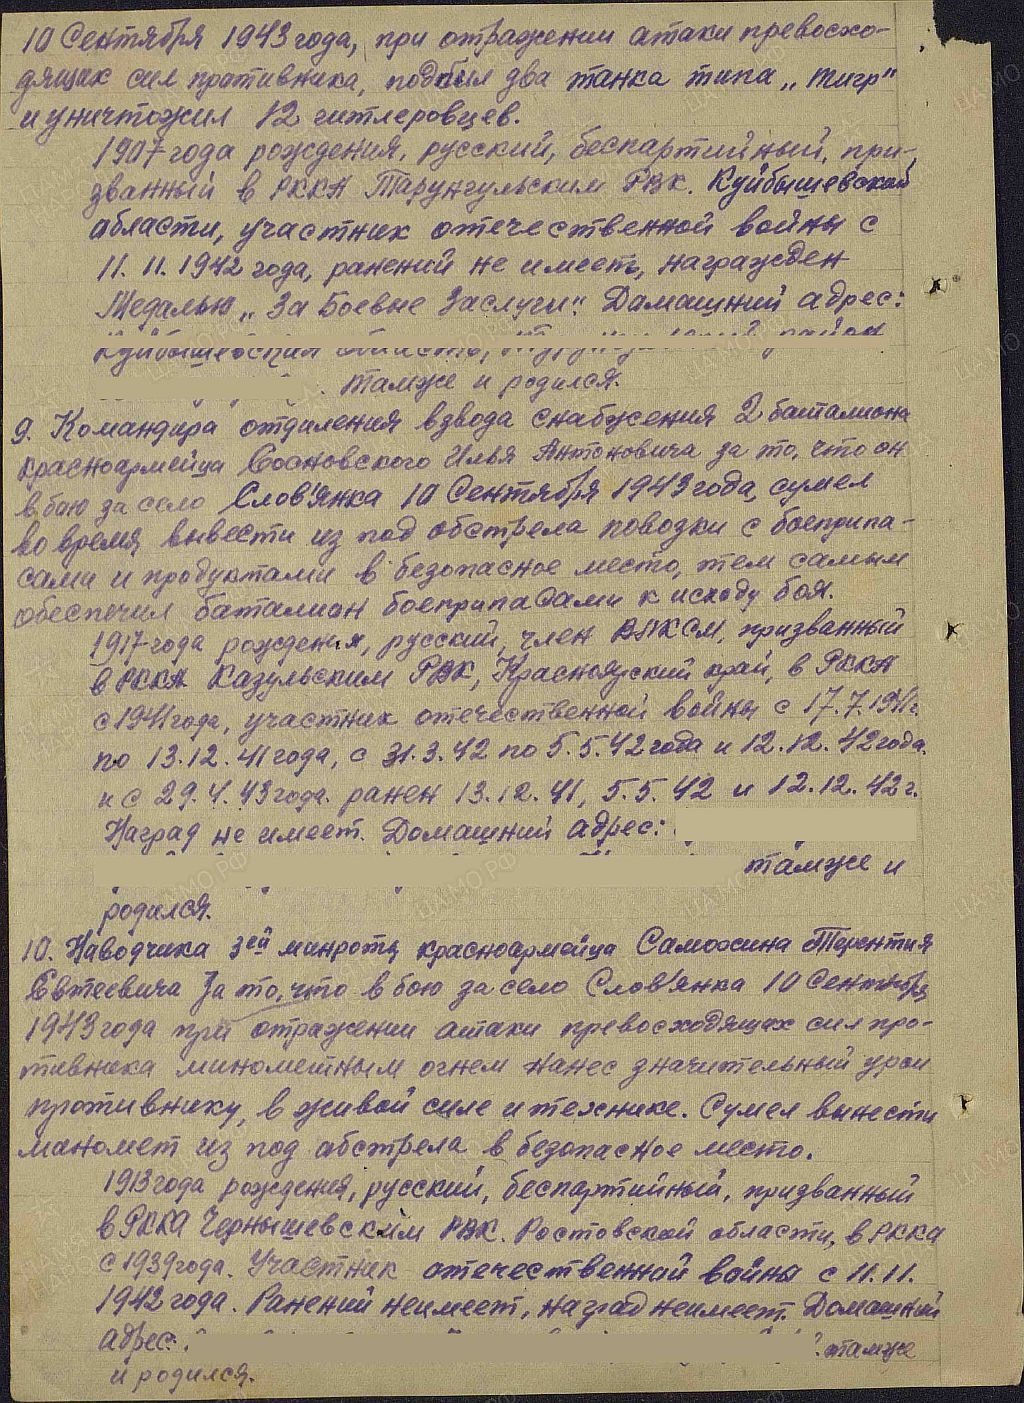 10 Сентября 1943 года, при отражении атаки превосхо-
дящих сил противника, подбил два танка типа „тигр"
и уничтожил 12 гитлеровцев.
1907 года рождения, русский, беспартийный, при-
званный в РККА Тарунгульским РВК. Куйбышевской
области, участник отечественной войны с
11.11.1942 года, ранений не имеет, награжден
Медалью „За Боевые Заслуги". Домашний адрес:
Куйбышевская область,
тамже и родился.
9. Командира отделения взвода снабжения 2 баталиона
красноармейца Сосновского Илья Антоновича за то, что он
в бою за село Слов'янка 10 Сентября 1943 года, сумел
во время вывести из под обстрела повозки с боеприпа-
сами и продуктами в безопасное место, тем самым
обеспечил баталион боеприпасами к исходу боя.
1917 года рождения, русский, член ВЛКСМ, призванный
в РККА Казульским РВК, Красноярский край, в РККА
с 1941 года, участник отечественной войны с 17.7.1941г.
по 13.12.41 года, с 31.3.42 по 5.5.42 года и 12.12.42 года.
и с 29.4.43 года. ранен 13.12.41, 5.5.42 и 12.12.42 г.
Наград не имеет. Домашний адрес:
тамже и
родился.
10. Наводчика 3ей минроты красноармейца Самохина Терентия
Евтеевича За то, что в бою за село Слов'янка 10 Сентября
1943 года при отражении атаки превосходящих сил про-
тивника минометным огнем нанес значительный урон
противнику, в живой силе и технике. Сумел вынести
миномет из под обстрела в безопасное место.
1913 года рождения, русский, беспартийный, призванный
в РККА Чернышевским РВК. Ростовской области, в РККА
с 1939 года. Участник отечественной войны с 11.11.
1942 года. Ранений неимеет, наград неимеет. Домашний
адрес:
тамже
и родился.